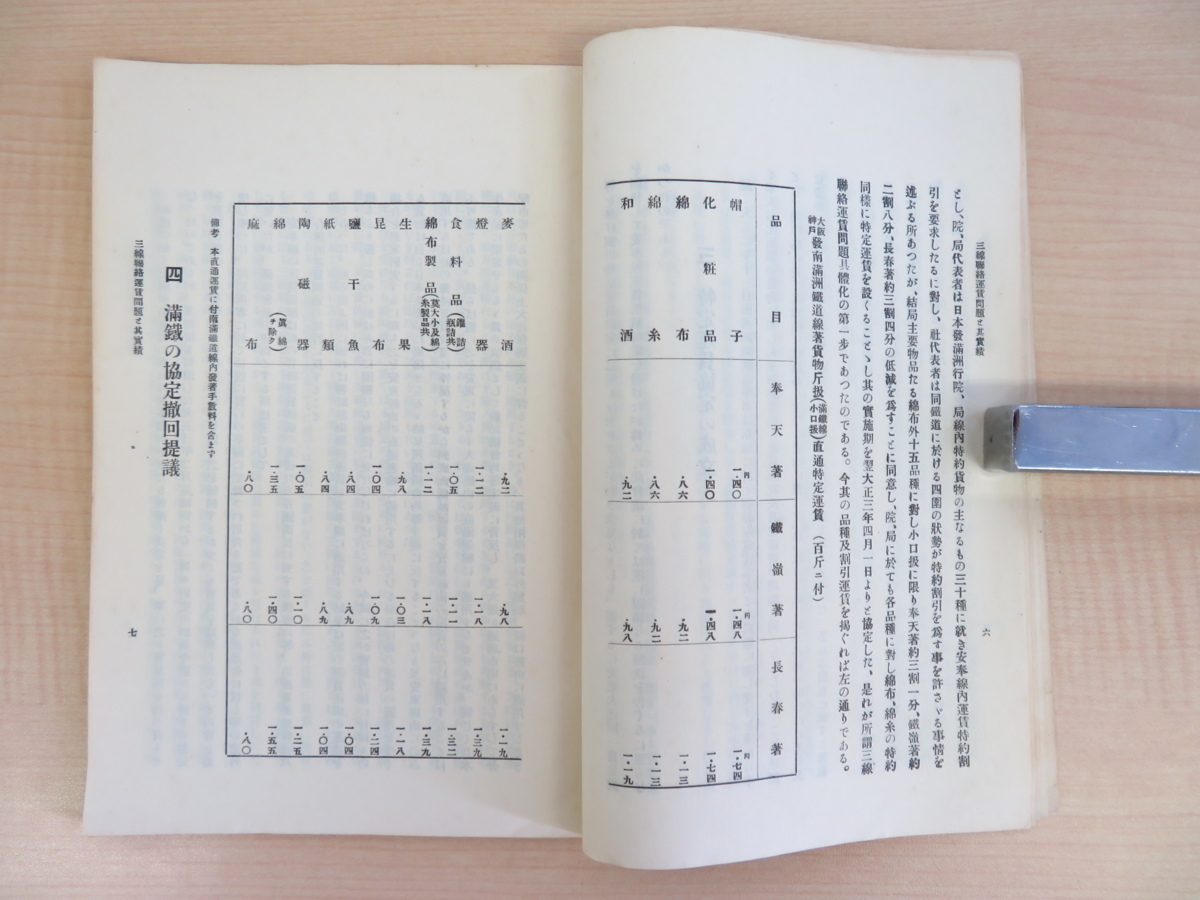 三線聯絡運賃問題と其實績
六
とし、院、局代表者は日本發滿洲行院、局線內特約貨物の主なるもの三十種に就き安奉線內運賃特約割
引を要求したるに對し、社代表者は同鐵道に於ける四圍の狀勢が特約割引を爲す事を許さゞる事情を
述ぶる所あつたが、結局主要物品たる綿布外十五品種に對し小口扱に限り奉天著約三割一分、鐵嶺著約
二割八分、長春著約三割四分の低減を爲すことに同意し、院、局に於ても各品種に對し綿布、綿糸の特約
同樣に特定運賃を設くることゝし其の實施期を翌大正三年四月一日よりと協定した、是れが所謂三線
聯絡運賃問題具體化の第一步であつたのである。今其の品種及割引運賃を揭ぐれば左の通りである。
大阪神戶發南滿洲鐵道線著貨物斤扱(滿鐵線小口扱)直通特定運賃 (百斤ニ付)
品目 奉天著 鐵嶺著 長春著
帽子 一・四〇円 一・四八円 一・七四円
化粧品 一・四〇 一・四八 一・七四
綿布 ・八六 ・九二 一・一三
綿糸 ・八六 ・九二 一・一三
和酒 ・九二 ・九八 一・一九
麥酒 ・九二 ・九八 一・一九
燈器 一・一二 一・一八 一・三九
食料品(罐詰瓶詰共) 一・〇五 一・一一 一・三二
綿布製品(莫大小及綿糸製品共) 一・一二 一・一八 一・三九
生果 ・九八 一・〇三 一・一八
昆布 一・〇四 一・〇九 一・二四
鹽干魚 ・八四 ・八九 一・〇四
紙類 ・八四 ・八九 一・〇四
陶磁器 一・〇五 一・一〇 一・二五
綿(眞綿ヲ除ク) 一・三五 一・四〇 一・五五
麻布 ・八〇 ・八〇 ・八〇
備考 本直通運賃に付南滿鐵道線內發著手數料を含まず
四 滿鐵の協定撤回提議
三線聯絡運賃問題と其實績
七